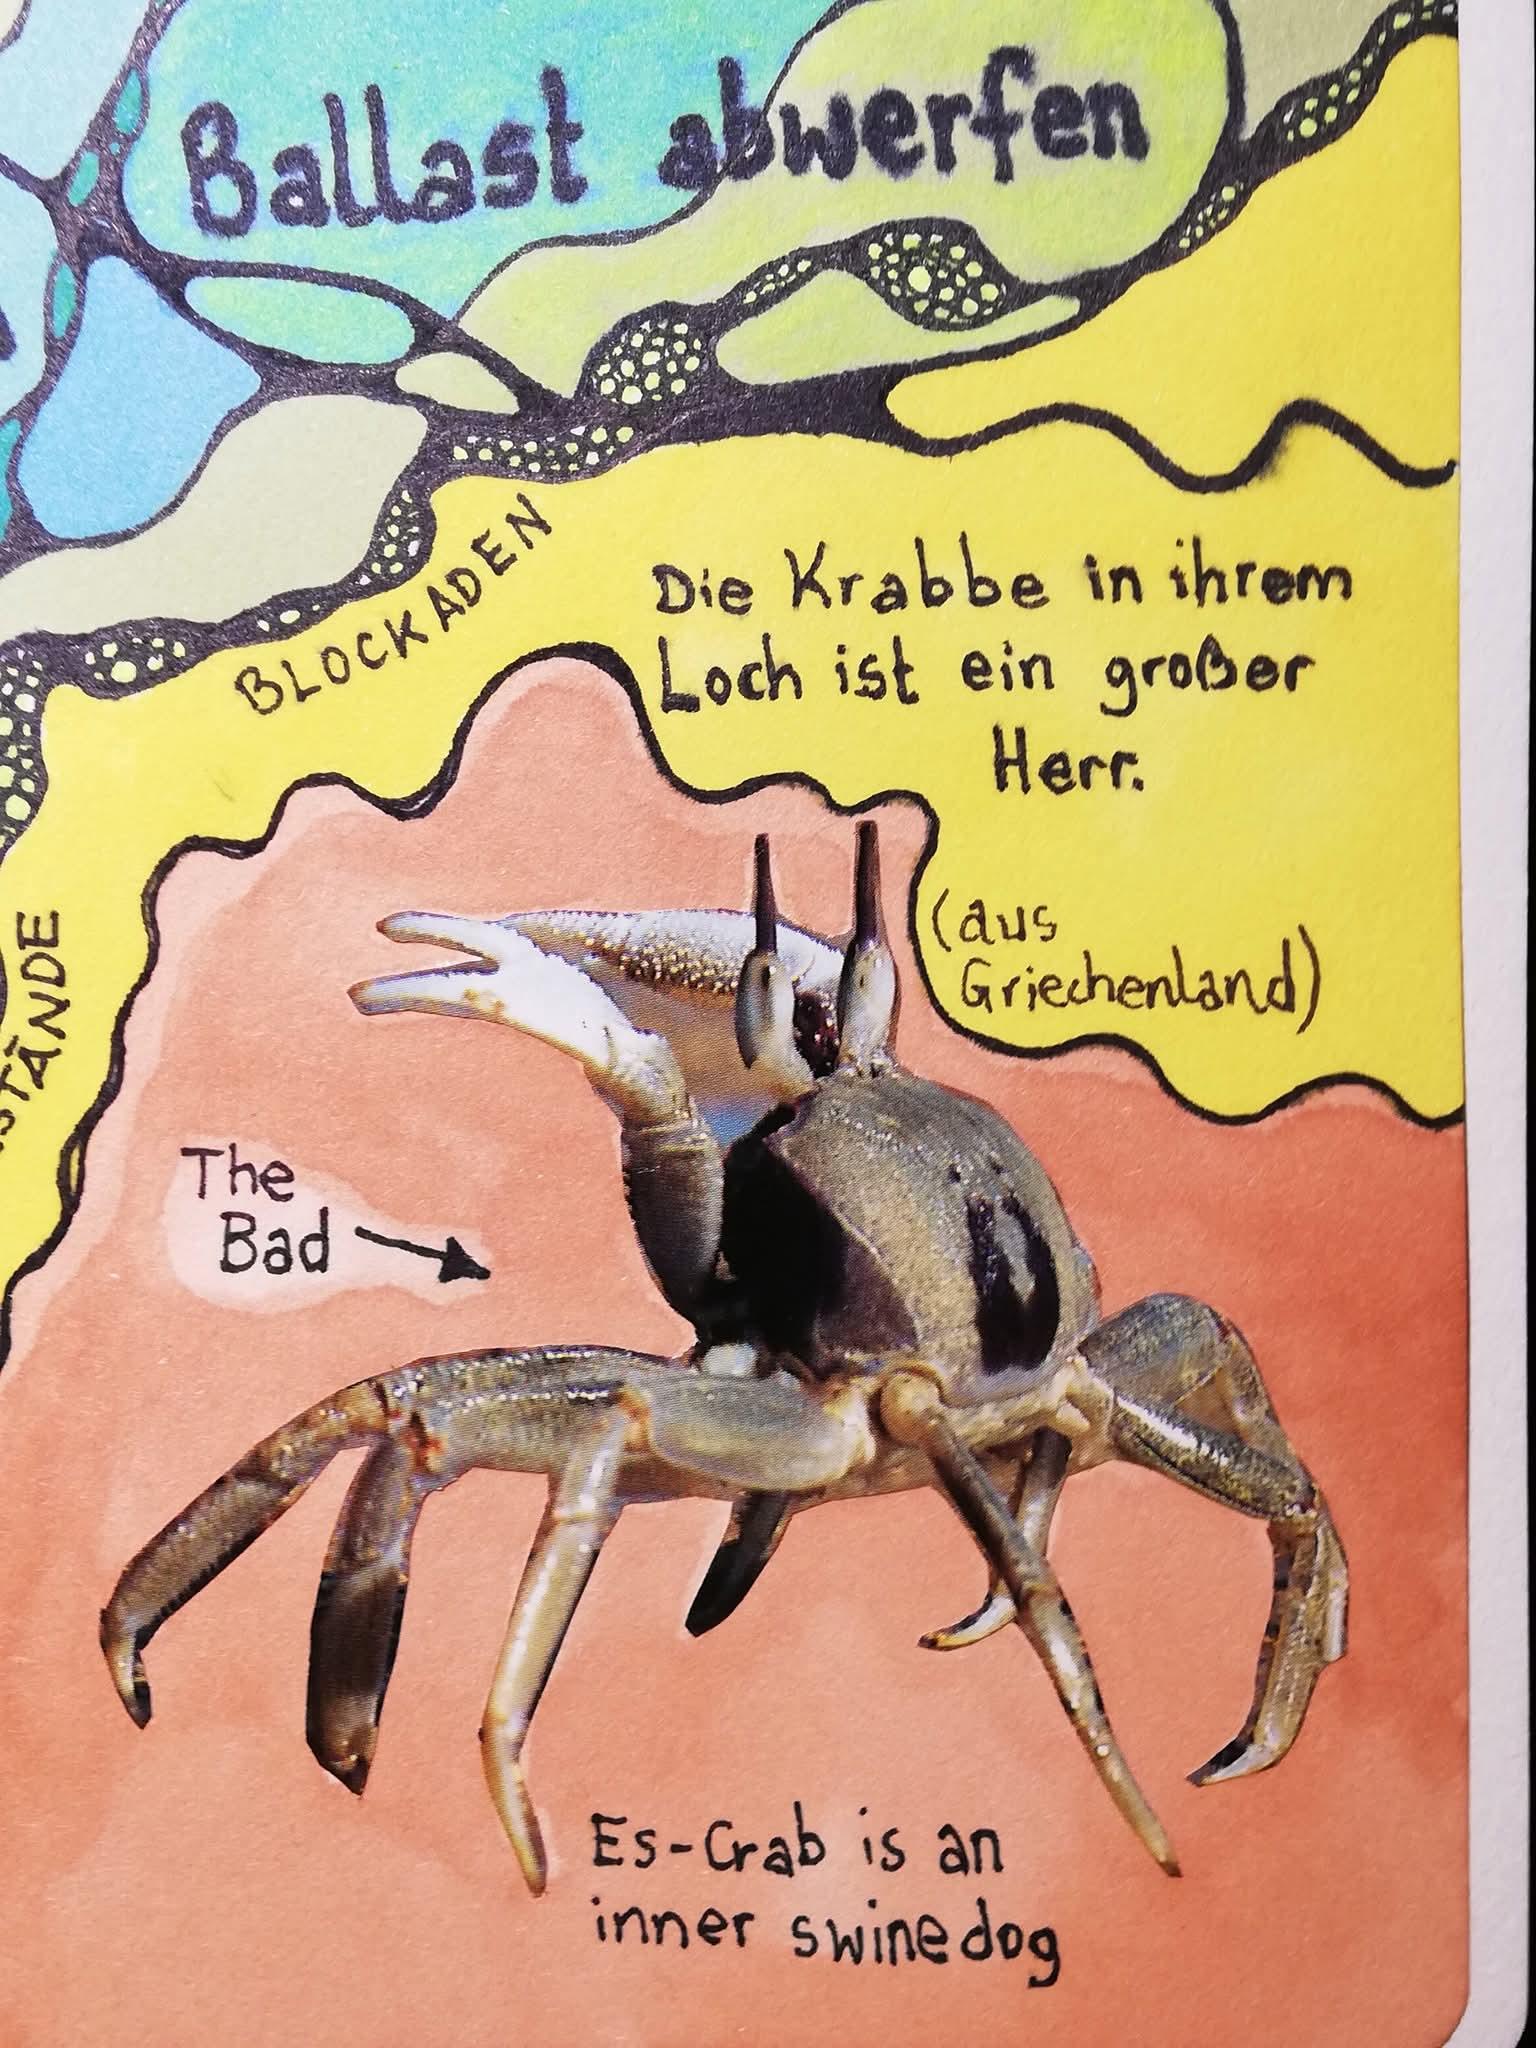 Ballast abwerfen
BLOCKADEN
Die Krabbe in ihrem
Loch ist ein großer
Herr.
(aus
Griechenland)
STÄNDE
The
Bad
Es-Crab is an
inner swinedog